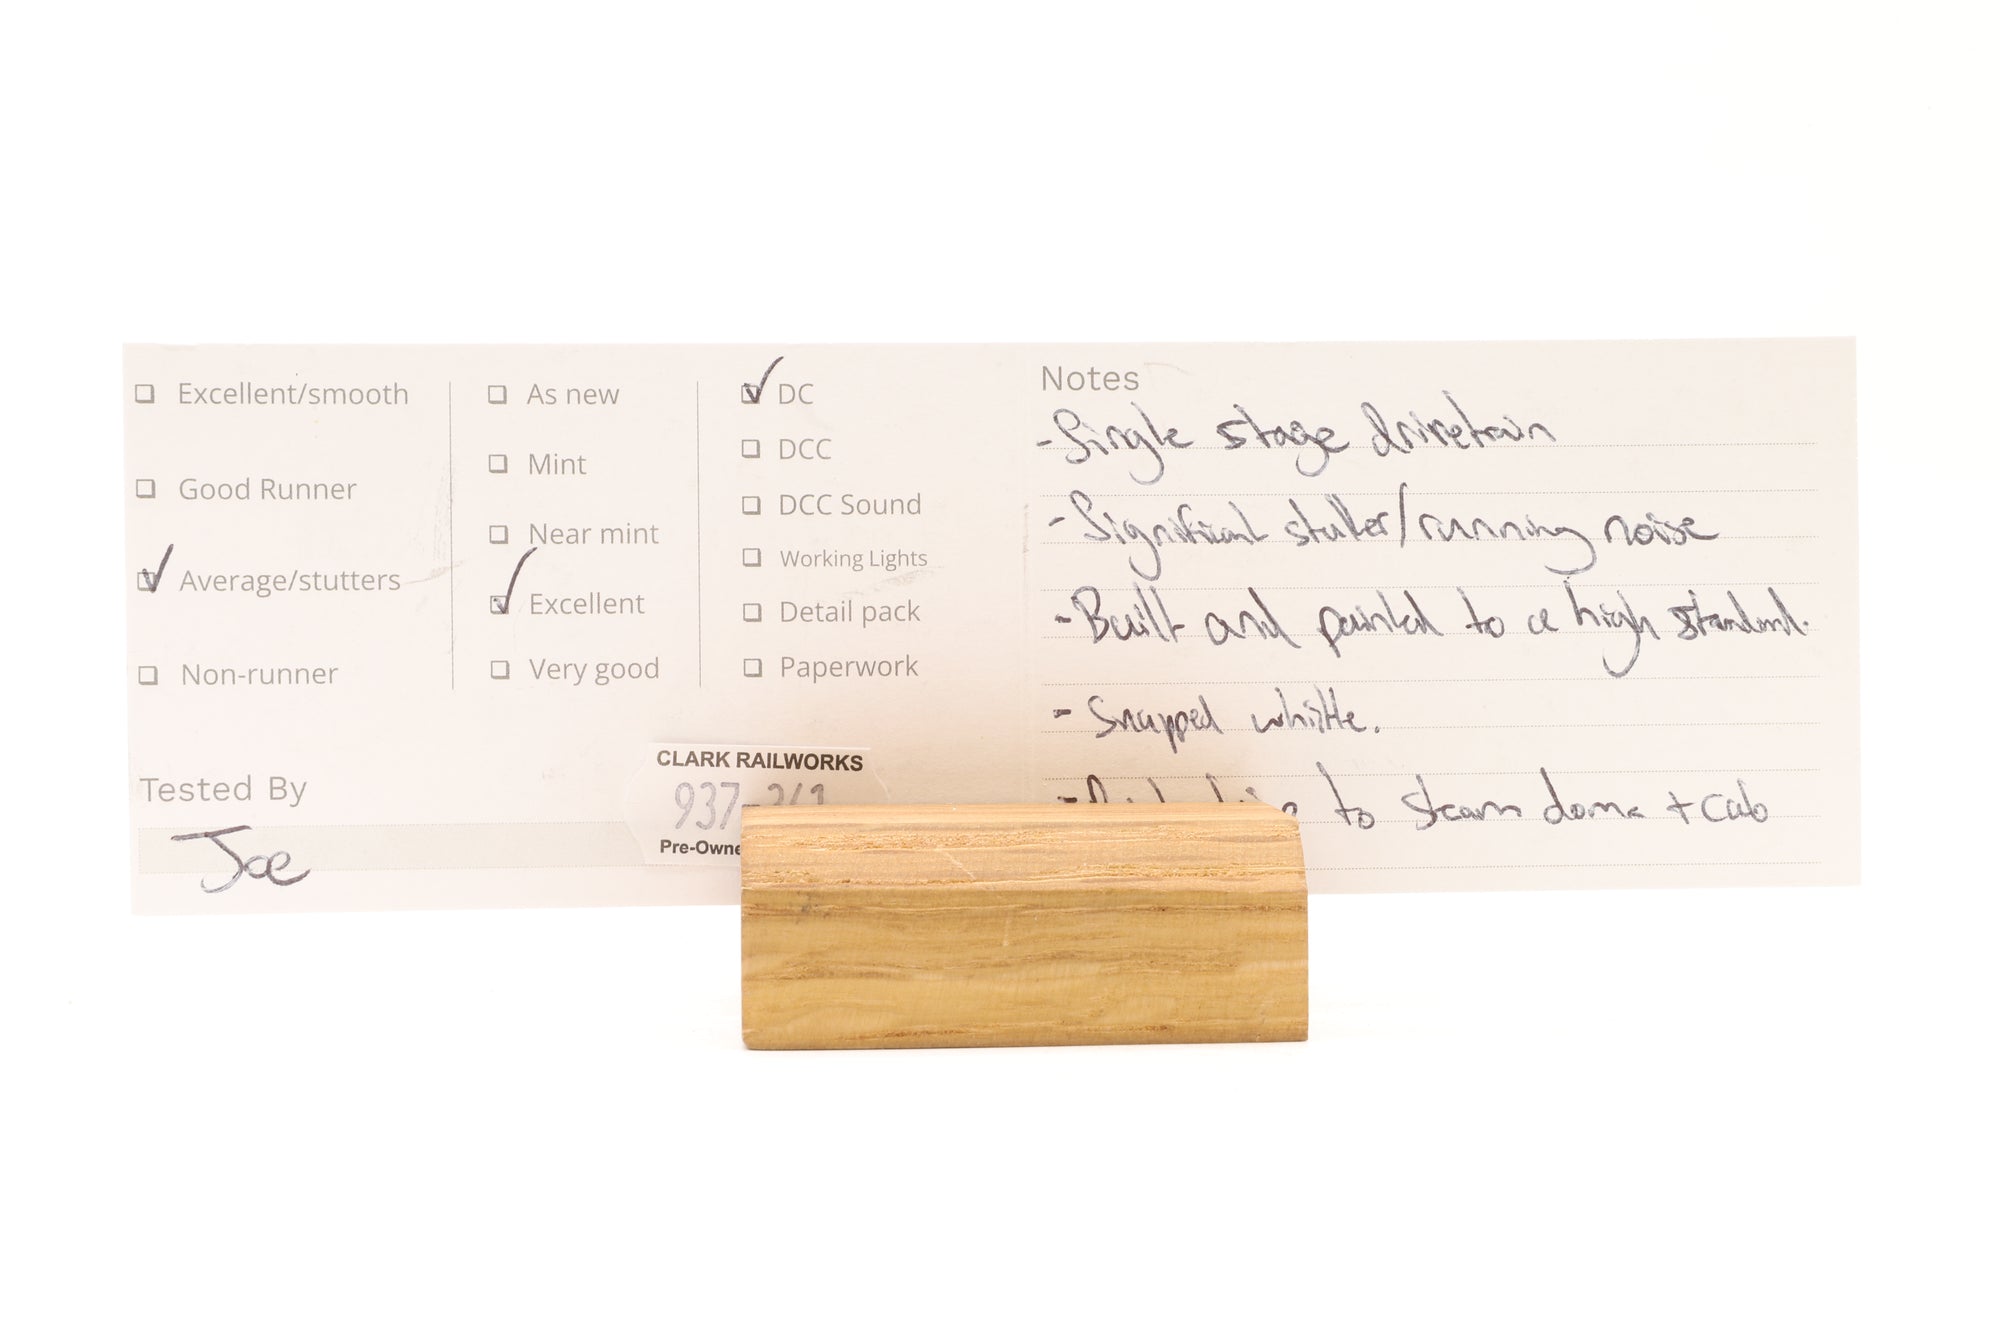 Excellent/smooth
Good Runner
Average/stutters
Non-runner
Tested By
Joe
As new
Mint
Near mint
Excellent
Very good
DC
DCC
DCC Sound
Working Lights
Detail pack
Paperwork
CLARK RAILWORKS
937-
Pre-Owne
Notes
- Single stage drivetrain
- Significant stutter/running noise
- Built and painted to a high standard.
- Snapped whistle.
to steam dome + cab